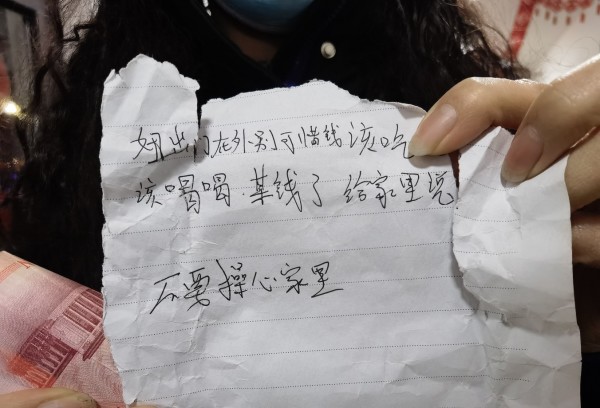 妞出门在外别可惜钱该吃
该喝喝.某钱了 给家里说
不要操心家里